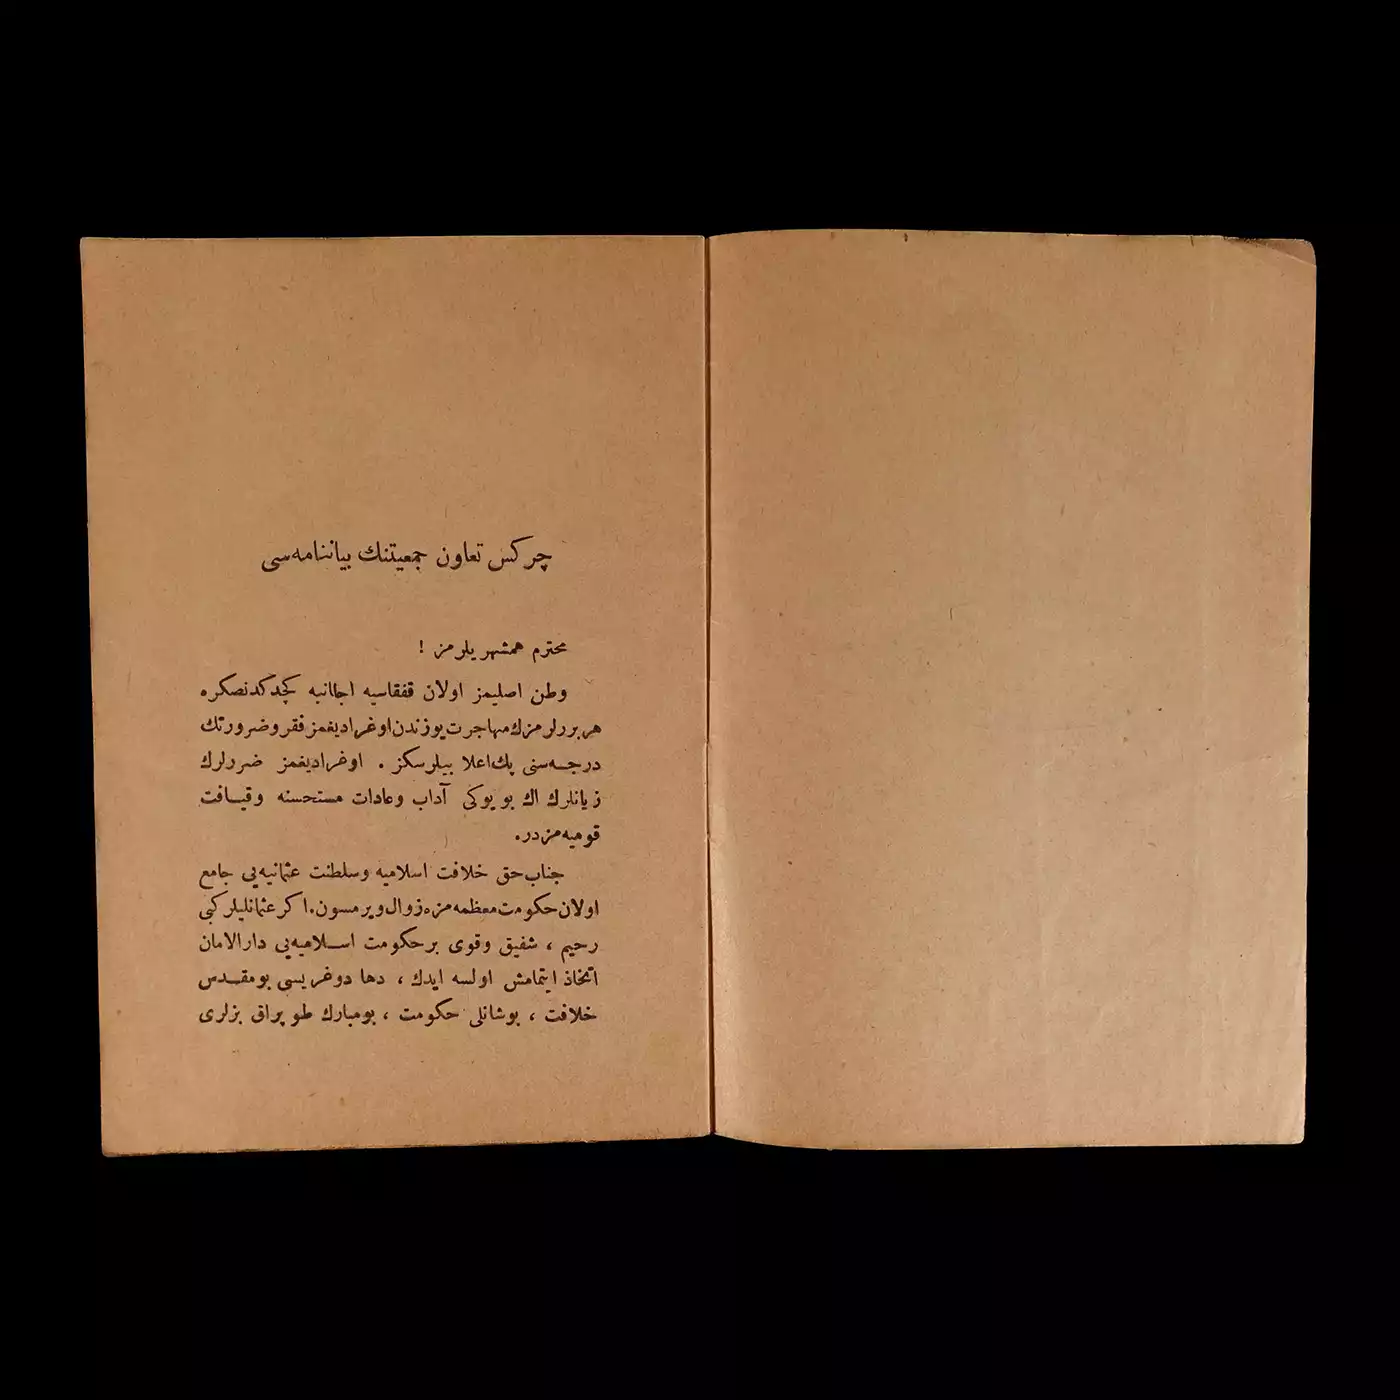 چركس تعاون جمعيتنك بياننامه‌سى
محترم همشهريلرمز !
وطن اصليمز اولان قفقاسيه اجانبه كچدكدنصكره
هربررلرمزك مهاجرت يوزندن اوغراديغمز فقر و ضرورتك
درجه‌سنى پك اعلا بيلرسكز . اوغراديغمز ضررلرك
زيانلرك اك بويوكى آداب وعادات مستحسنه وقيافت
قوميه‌مزدر.
جناب حق خلافت اسلاميه وسلطنت عثمانيه‌يى جامع
اولان حكومت معظمه‌مزه زوال ويرمسون. اكر عثمانليلر كبى
رحيم ، شفيق وقوى برحكومت اسلاميه‌يى دارالامان
اتخاذ ايتمامش اولسه ايدك ، دها دوغريسى بومقدس
خلافت ، بوشانلى حكومت ، بومبارك طوپراق بزلرى